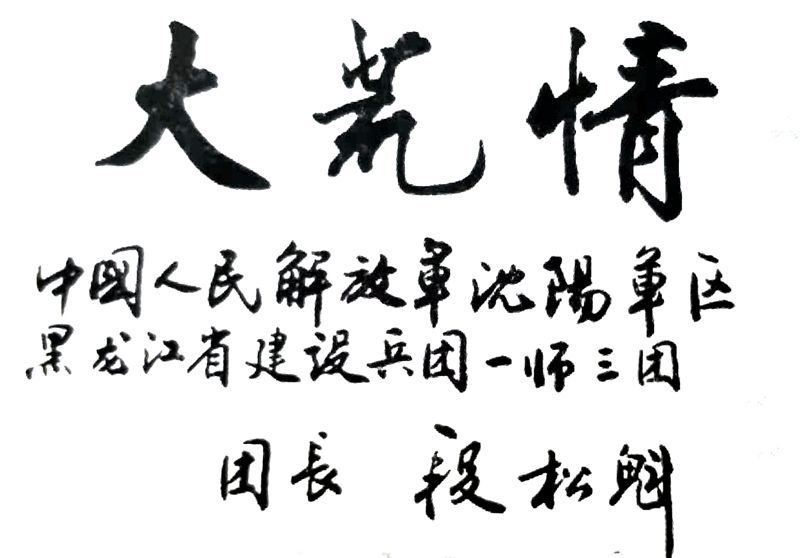 大荒情
中國人民解放軍沈陽軍区
黑龙江省建设兵团一师三团
团長 段松魁